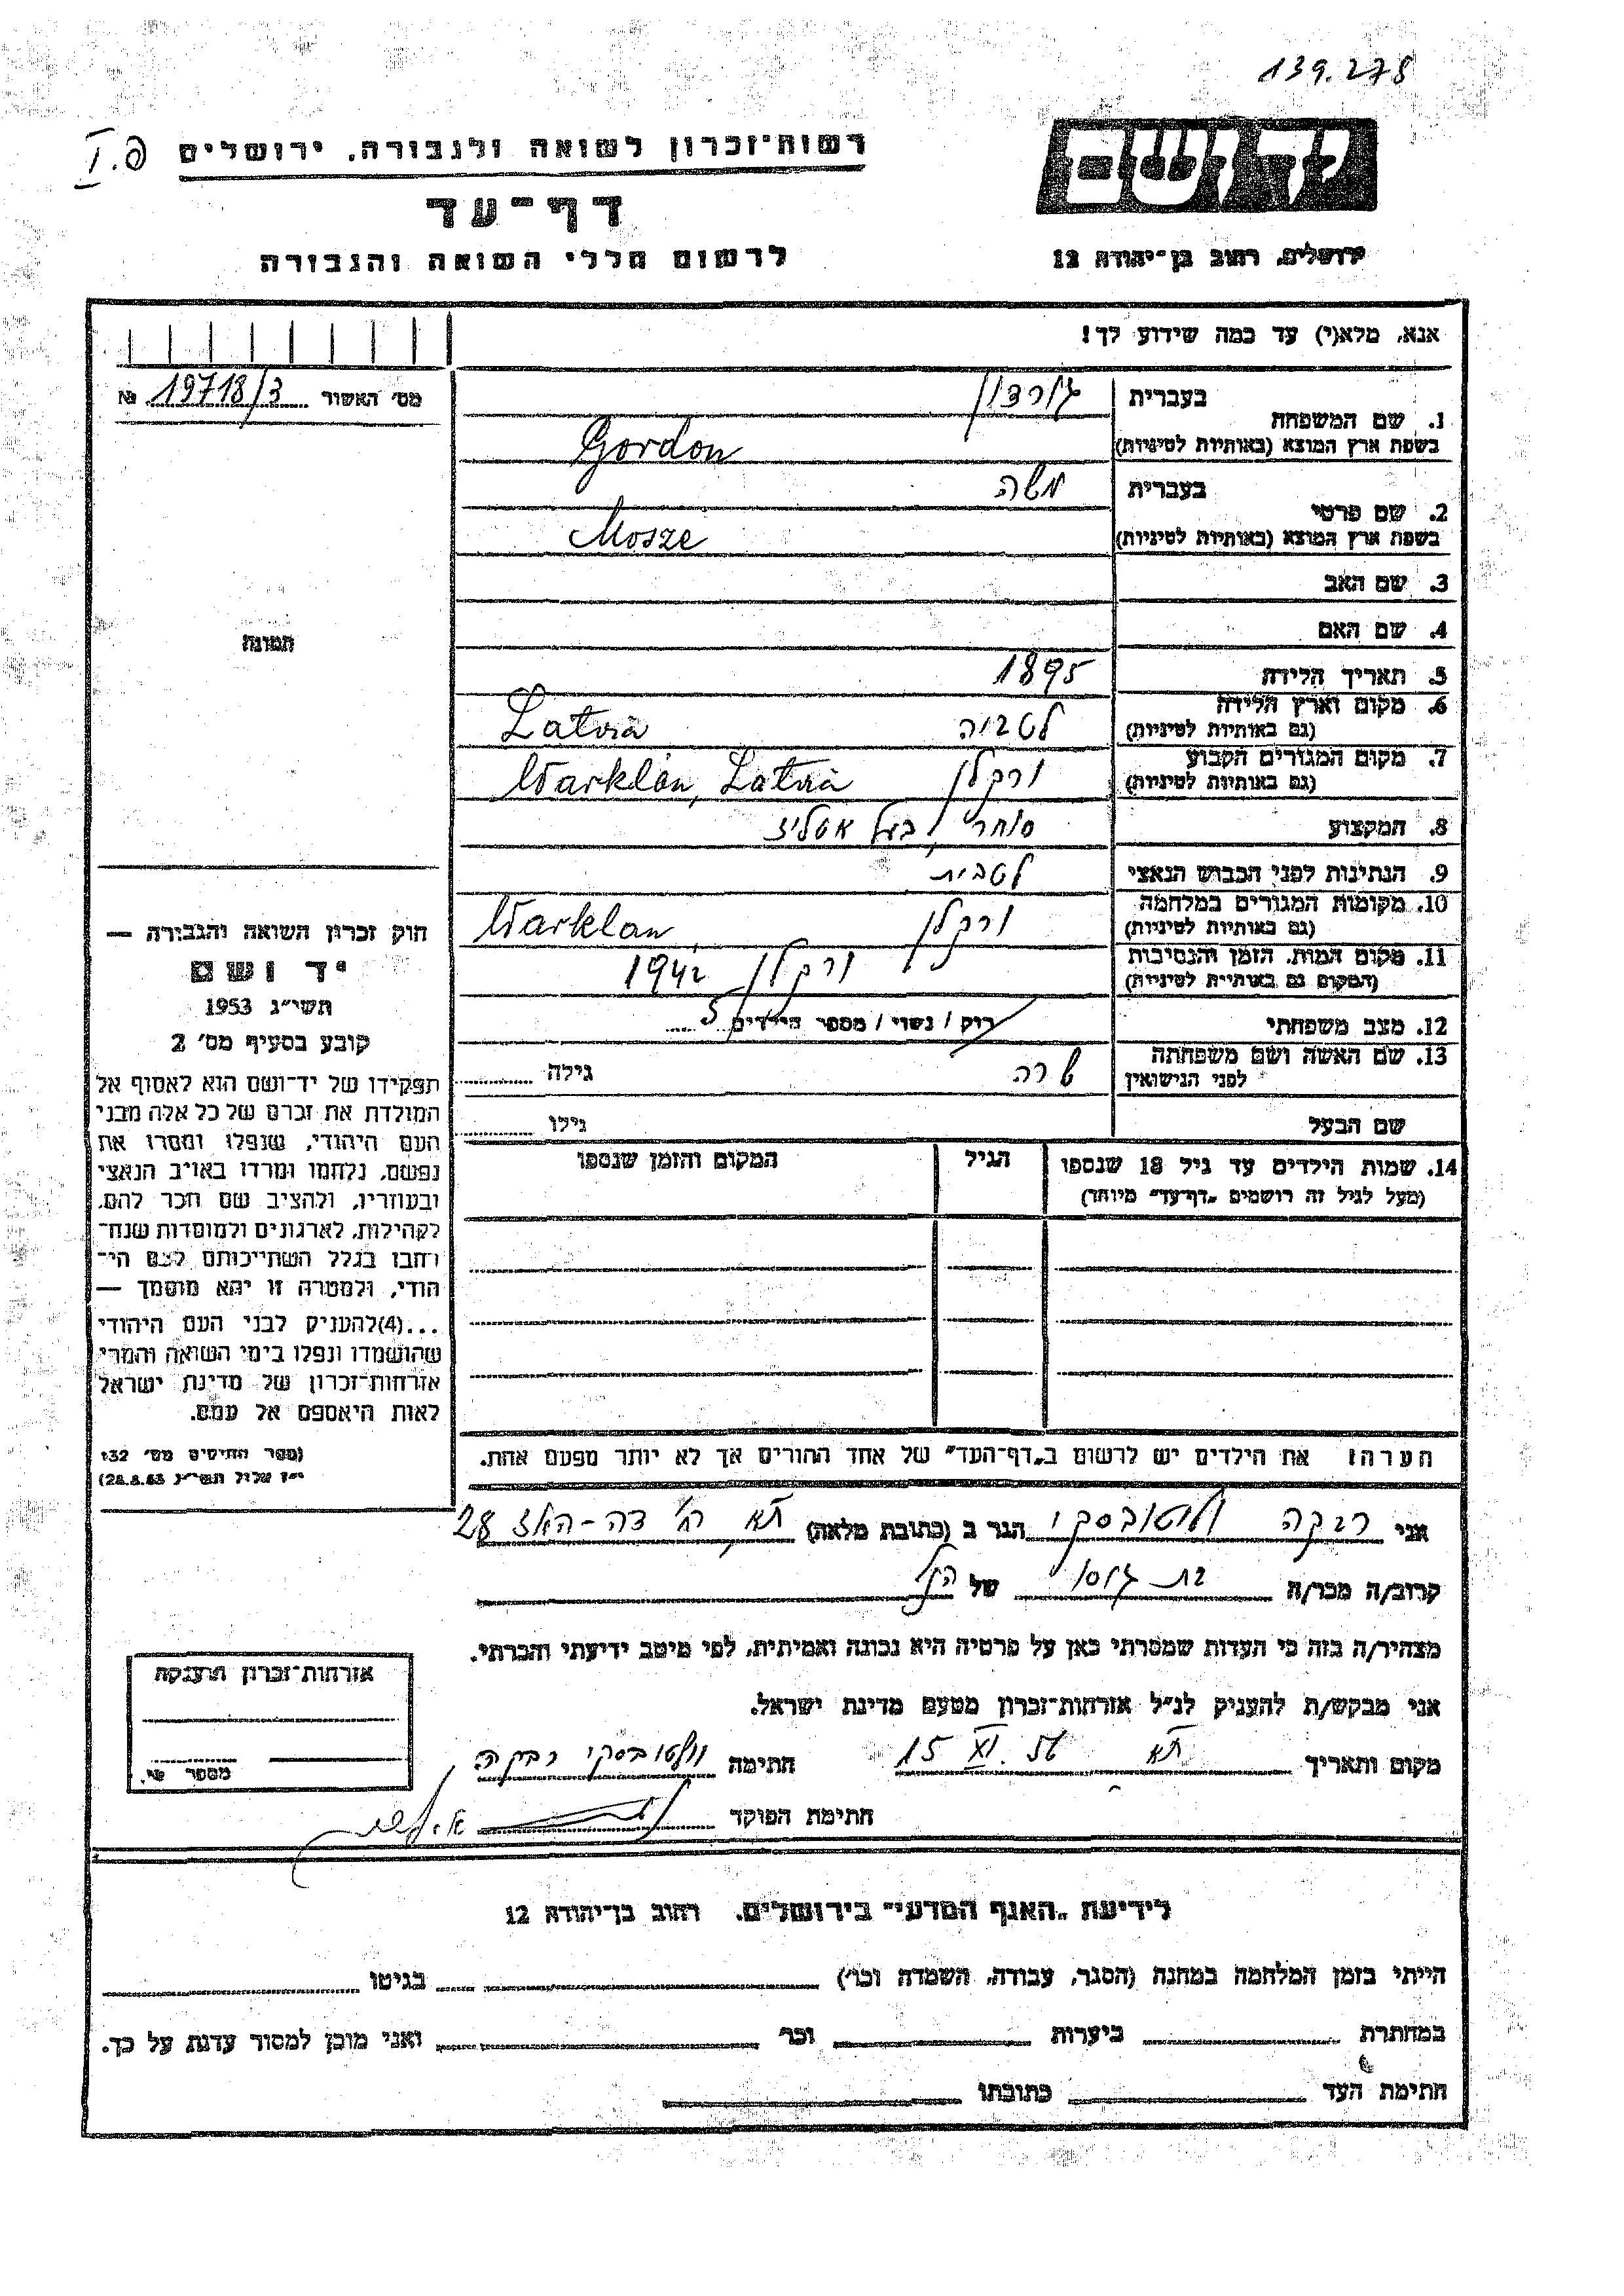 139.278
יד ושם
רשות־זכרון לשואה ולגבורה, ירושלים
דף־עד
ירושלים, רחוב בן־יהודה 12
לרשום חללי השואה והגבורה
אנא, מלא(י) עד כמה שידוע לך!
מס׳ האשור 19718/3 №
1. שם המשפחה
בעברית גורדון
בשפת ארץ המוצא (באותיות לטיניות) Gordon
2. שם פרטי
בעברית משה
בשפת ארץ המוצא (באותיות לטיניות) Mosze
3. שם האב
4. שם האם
תמונה
5. תאריך הלידה 1895
6. מקום וארץ הלידה
(גם באותיות לטיניות) לטביה Latvia
7. מקום המגורים הקבוע
(גם באותיות לטיניות) ורקלן Warklan, Latvia
8. המקצוע סוחר, בעל אטליז
9. הנתינות לפני הכבוש הנאצי לטבית
10. מקומות המגורים במלחמה
(גם באותיות לטיניות) ורקלן Warklan
11. מקום המות, הזמן והנסיבות
(המקום גם באותיות לטיניות) ורקלן 1942
12. מצב משפחתי רוק / נשוי / מספר הילדים 5
13. שם האשה ושם משפחתה
לפני הנישואין שרה גילה
שם הבעל גילו
14. שמות הילדים עד גיל 18 שנספו
(מעל לגיל זה רושמים „דף־עד״ מיוחד)
הגיל
המקום והזמן שנספו
הערה: את הילדים יש לרשום ב„דף־העד״ של אחד ההורים אך לא יותר מפעם אחת.
חוק זכרון השואה והגבורה —
יד ושם
תשי״ג 1953
קובע בסעיף מס׳ 2
תפקידו של יד־ושם הוא לאסוף אל
המולדת את זכרם של כל אלה מבני
העם היהודי, שנפלו ומסרו את
נפשם, נלחמו ומרדו באויב הנאצי
ובעוזריו, ולהציב שם וזכר להם,
לקהילות, לארגונים ולמוסדות שנח־
רבו בגלל השתייכותם לעם הי־
הודי, ולמטרה זו יהא מוסמך —
...(4)להעניק לבני העם היהודי
שהושמדו ונפלו בימי השואה והמרי
אזרחות־זכרון של מדינת ישראל
לאות היאספם אל עמם.
(ספר החוקים מס׳ 132
י״ז אלול תשי״ג 28.8.53)
אני רבקה ולטובסקי הגר ב (כתובת מלאה) תא רח׳ דה-האז 28
קרוב/ה מכר/ה בת גיסו של הנ״ל
מצהיר/ה בזה כי העדות שמסרתי כאן על פרטיה היא נכונה ואמיתית, לפי מיטב ידיעתי והכרתי.
אני מבקש/ת להעניק לנ״ל אזרחות־זכרון מטעם מדינת ישראל.
מקום ותאריך תא 15 XI. 56 חתימה ולטובסקי רבקה
חתימת הפוקד
אזרחות־זכרון הוענקה
מספר
לידיעת „האגף המדעי״ בירושלים, רחוב בן־יהודה 12
הייתי בזמן המלחמה במחנה (הסגר, עבודה, השמדה וכו׳) בגיטו
במחתרת ביערות וכו׳ ואני מוכן למסור עדות על כך.
חתימת העד כתובתו